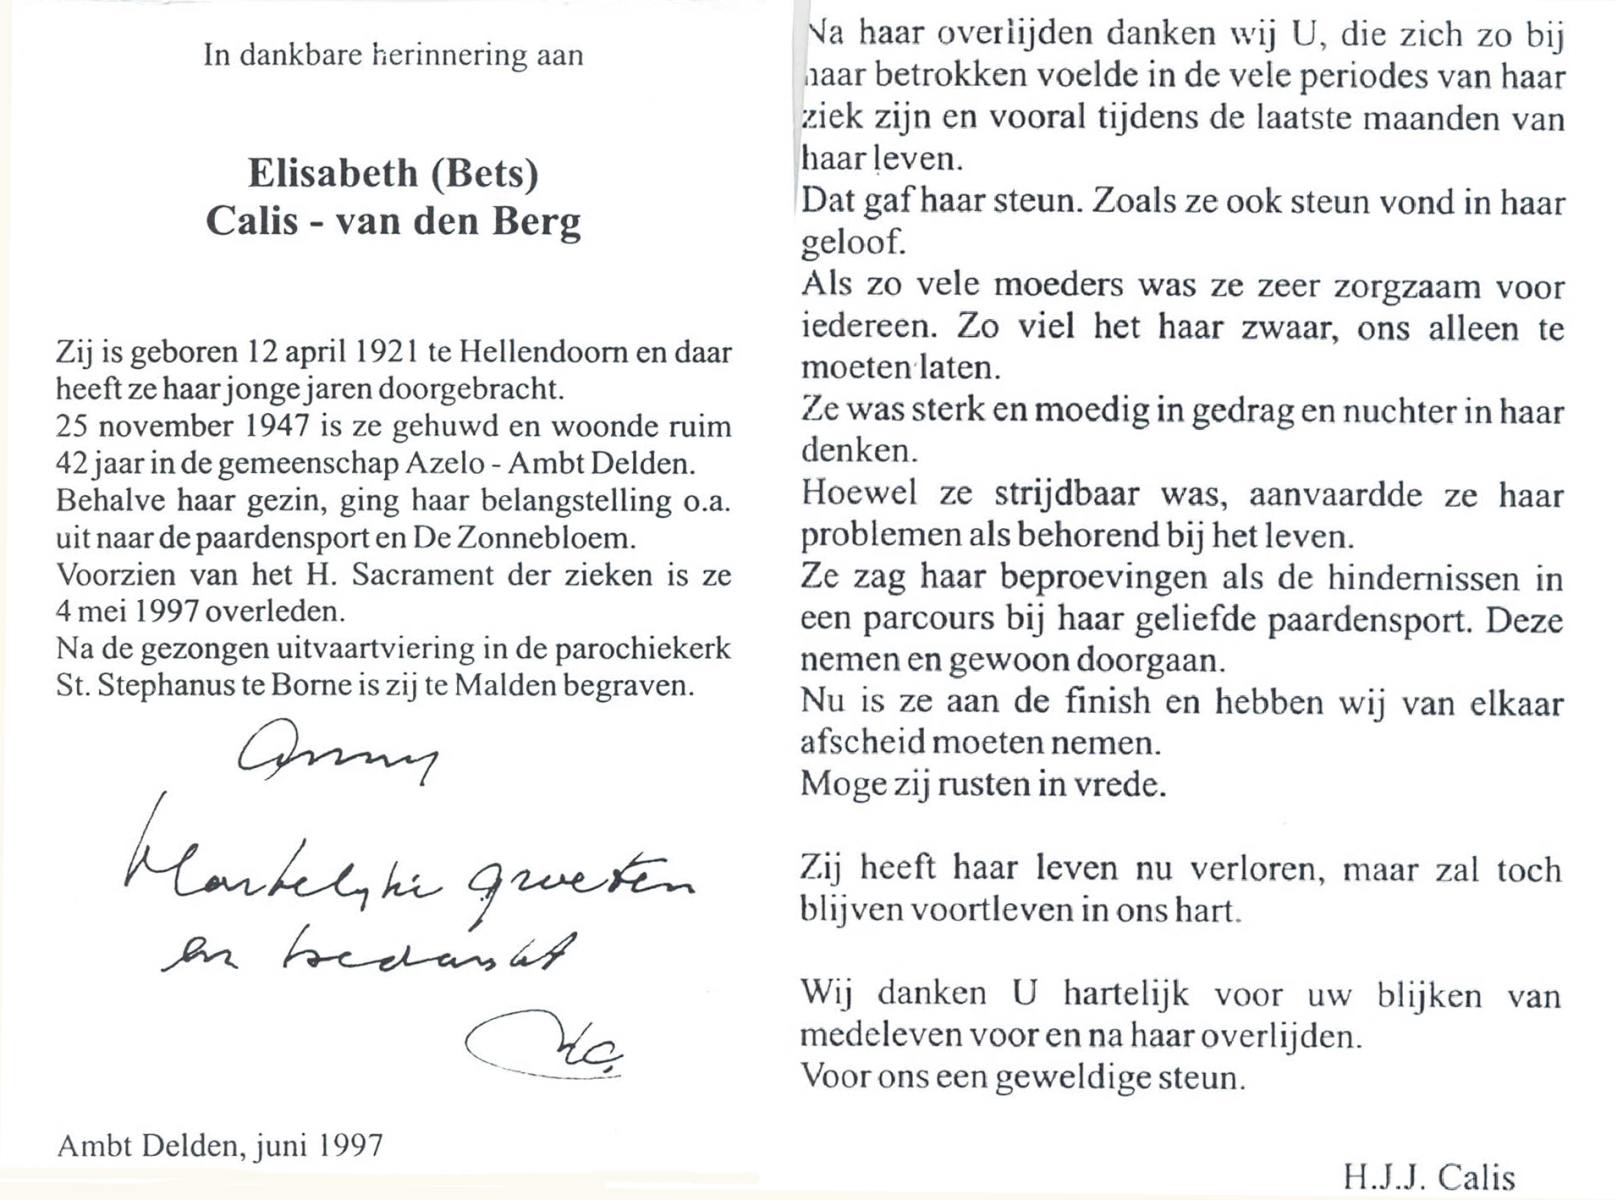 In dankbare herinnering aan
Elisabeth (Bets)
Calis - van den Berg
Zij is geboren 12 april 1921 te Hellendoorn en daar
heeft ze haar jonge jaren doorgebracht.
25 november 1947 is ze gehuwd en woonde ruim
42 jaar in de gemeenschap Azelo - Ambt Delden.
Behalve haar gezin, ging haar belangstelling o.a.
uit naar de paardensport en De Zonnebloem.
Voorzien van het H. Sacrament der zieken is ze
4 mei 1997 overleden.
Na de gezongen uitvaartviering in de parochiekerk
St. Stephanus te Borne is zij te Malden begraven.
Anny
Hartelijke groeten
en bedankt
Ambt Delden, juni 1997
Na haar overlijden danken wij U, die zich zo bij
haar betrokken voelde in de vele periodes van haar
ziek zijn en vooral tijdens de laatste maanden van
haar leven.
Dat gaf haar steun. Zoals ze ook steun vond in haar
geloof.
Als zo vele moeders was ze zeer zorgzaam voor
iedereen. Zo viel het haar zwaar, ons alleen te
moeten laten.
Ze was sterk en moedig in gedrag en nuchter in haar
denken.
Hoewel ze strijdbaar was, aanvaardde ze haar
problemen als behorend bij het leven.
Ze zag haar beproevingen als de hindernissen in
een parcours bij haar geliefde paardensport. Deze
nemen en gewoon doorgaan.
Nu is ze aan de finish en hebben wij van elkaar
afscheid moeten nemen.
Moge zij rusten in vrede.
Zij heeft haar leven nu verloren, maar zal toch
blijven voortleven in ons hart.
Wij danken U hartelijk voor uw blijken van
medeleven voor en na haar overlijden.
Voor ons een geweldige steun.
H.J.J. Calis